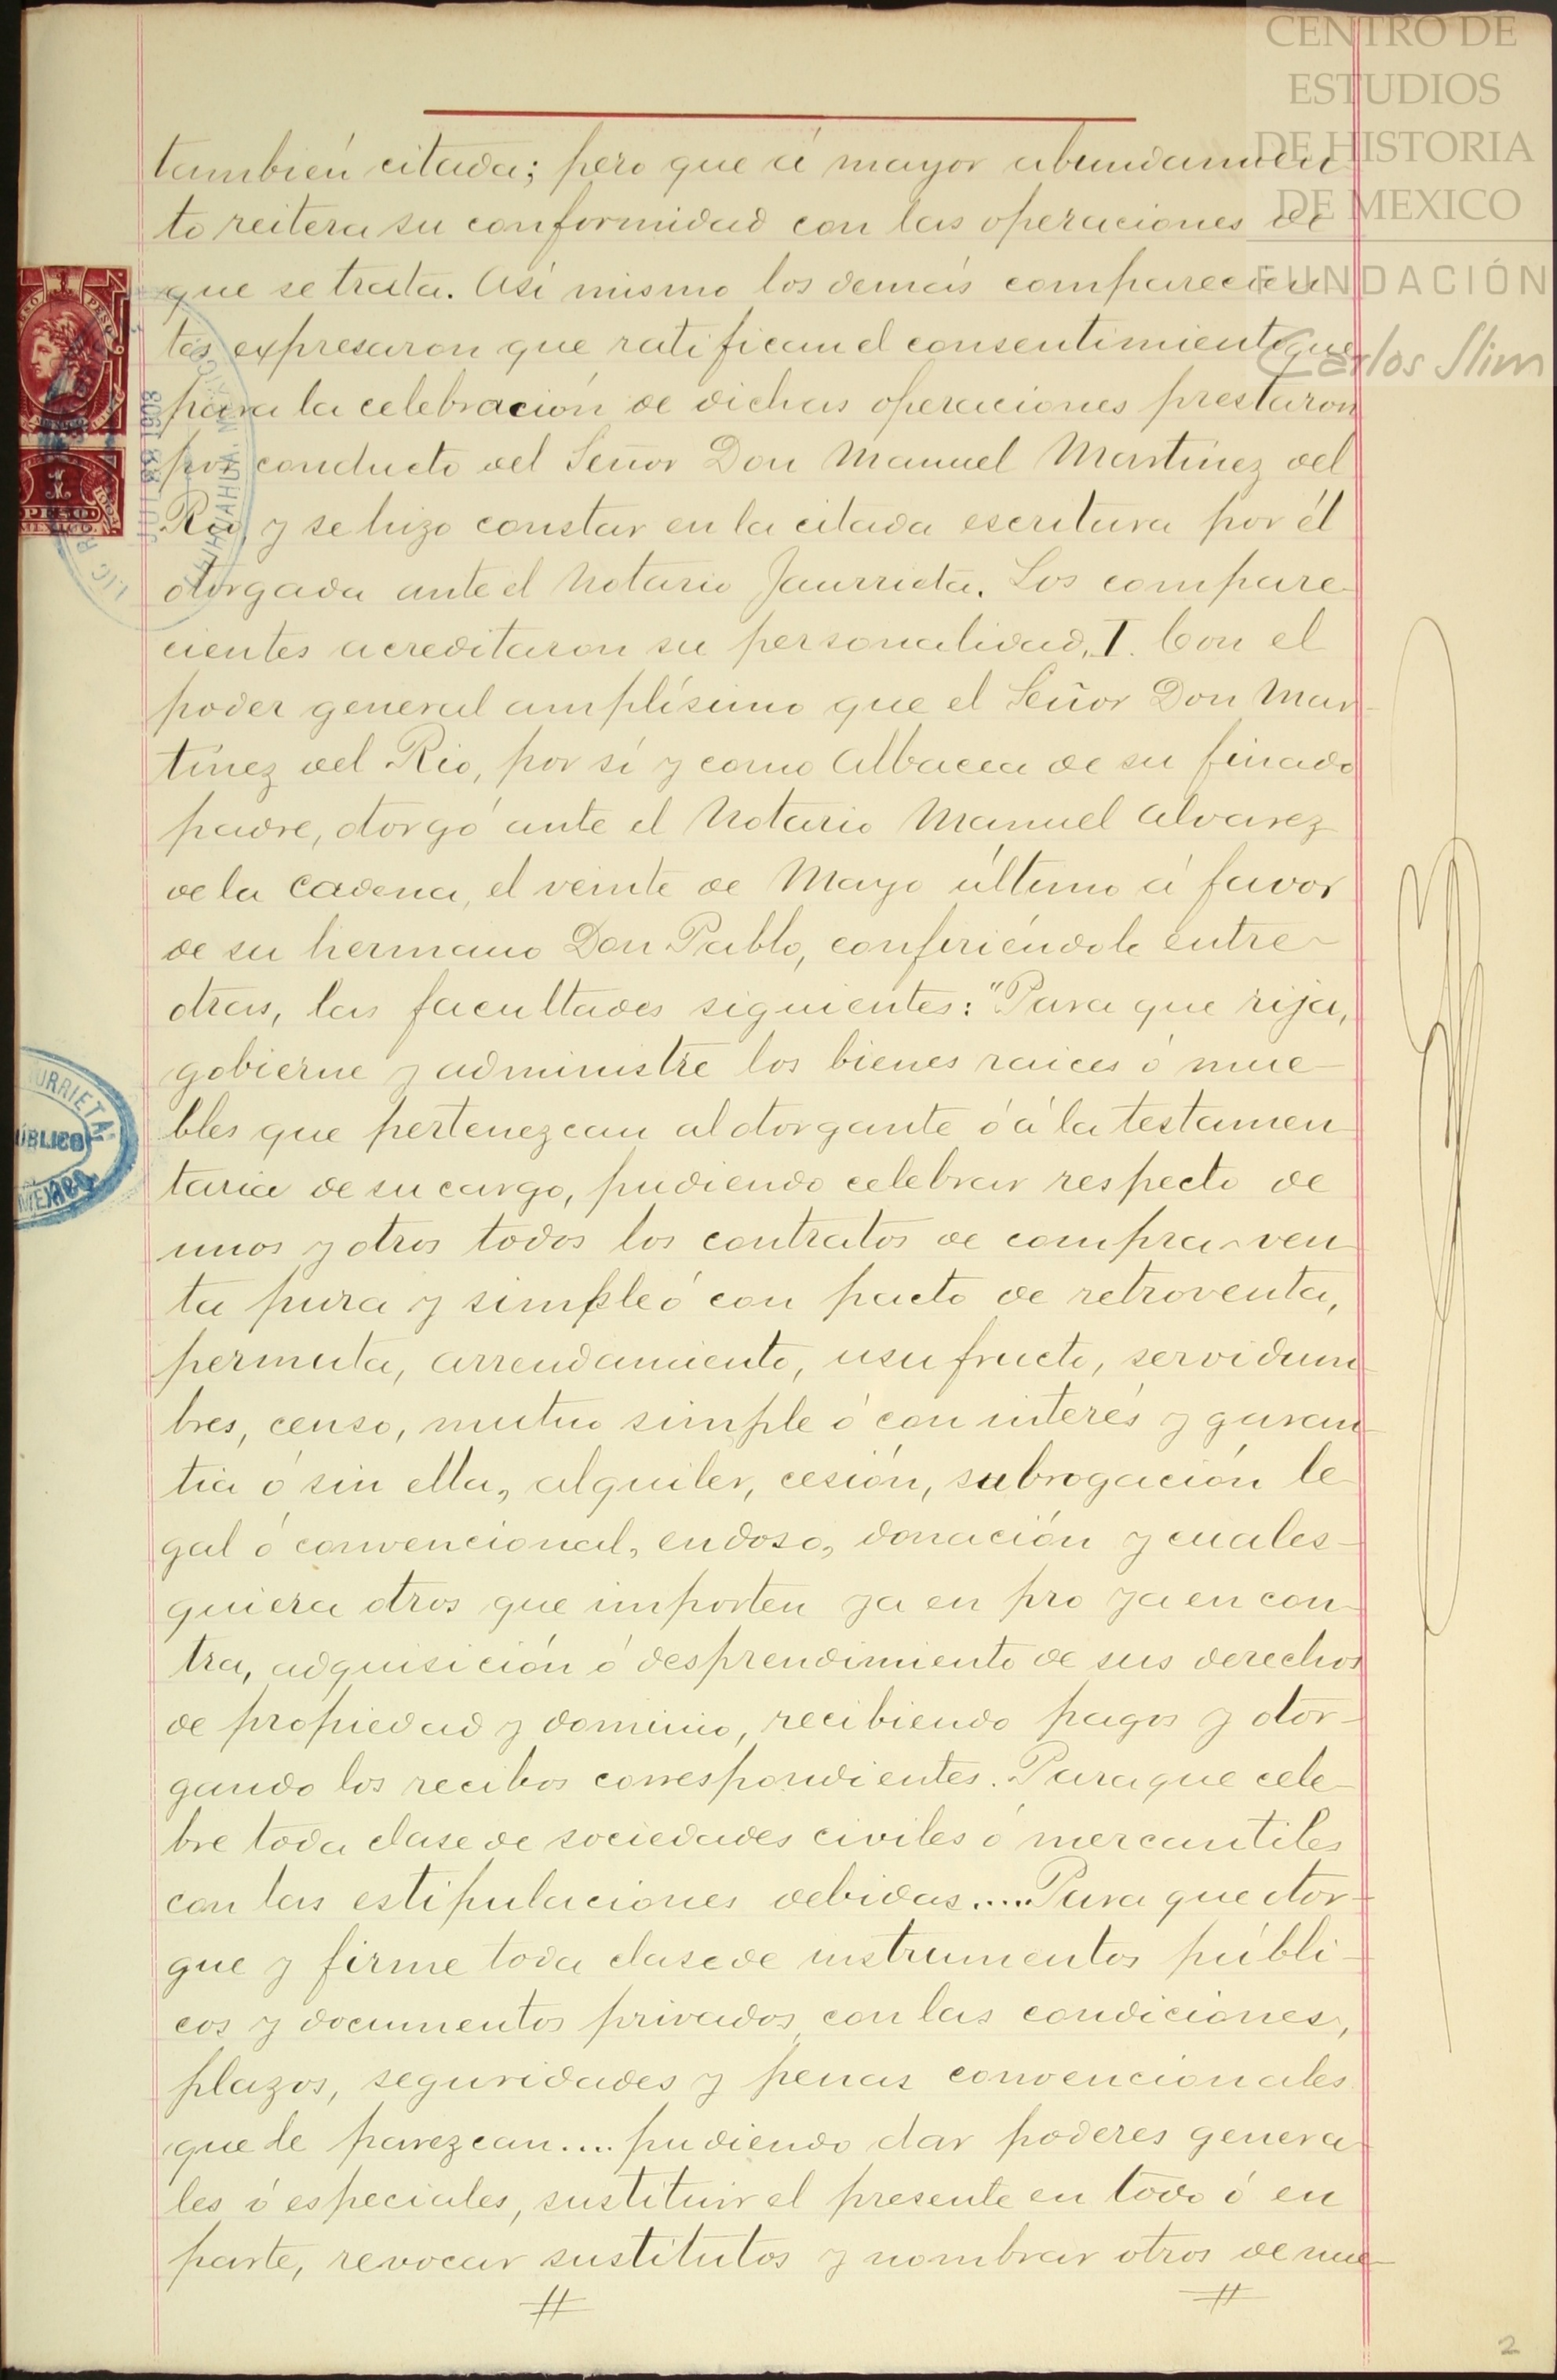 CENTRO DE
ESTUDIOS
DE HISTORIA
DE MEXICO
FUNDACIÓN
Carlos Slim
también citada; pero que á mayor abundamien
to reitera su conformidad con las operaciones de
que se trata. Así mismo los demás comparecien
tes expresaron que ratifican el consentimiento que
para la celebración de dichas operaciones prestaron
por conducto del Señor Don Manuel Martínez del
Rio y se hizo constar en la citada escritura por él
otorgada ante el Notario Jaurrieta. Los compare-
cientes acreditaron su personalidad, I. Con el
poder general amplísimo que el Señor Don Mar-
tínez del Rio, por sí y como Albacea de su finado
padre, otorgó ante el Notario Manuel Alvarez
de la Cadena, el veinte de Mayo último á favor
de su hermano Don Pablo, confiriéndole entre-
otras, las facultades siguientes: "Para que rija,
gobierne y administre los bienes raices ó mue-
bles que pertenezcan al otorgante ó á la testamen
taria de su cargo, pudiendo celebrar respecto de
unos y otros todos los contratos de compra-ven
ta pura y simple ó con pacto de retroventa,
permuta, arrendamiento, usufructo, servidum
bres, censo, mutuo simple ó con interés y garan
tia ó sin ella, alquiler, cesión, subrogación le
gal ó convencional, endoso, donación y cuales-
quiera otros que importen ya en pro ya en con-
tra, adquisición ó desprendimiento de sus derechos
de propiedad y dominio, recibiendo pagos y otor-
gando los recibos correspondientes. Para que cele-
bre toda clase de sociedades civiles ó mercantiles
con las estipulaciones debidas.... Para que otor-
gue y firme toda clase de instrumentos públi-
cos y documentos privados, con las condiciones,
plazos, seguridades y penas convencionales
que le parezcan.... pudiendo dar poderes genera-
les ó especiales, sustituir el presente en todo ó en
parte, revocar sustitutos y nombrar otros de nue-
1 PESO
URRIETA
ÚBLICO
MEXICO
2